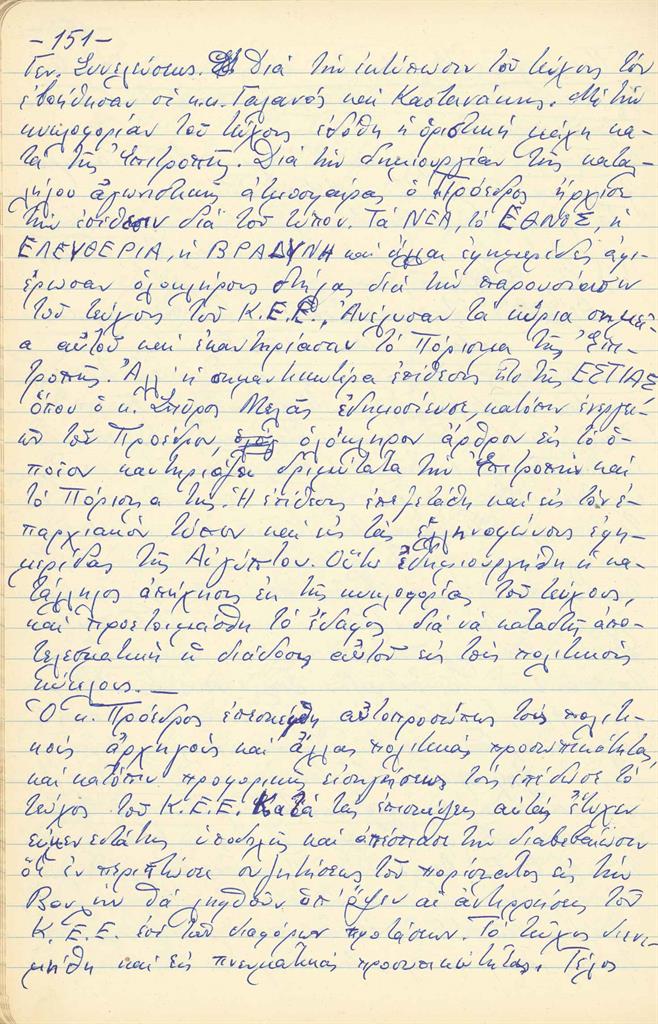 -151-
Γεν. Συνελεύσεως. Διά τήν ἐκτύπωσιν τοῦ τεύχους τόν
ἐβοήθησαν οἱ κ.κ. Γαλανός καί Καστανάκης. Μέ τήν
κυκλοφορίαν τοῦ τεύχους ἐδόθη ἡ ὁριστική μάχη κα-
τά τῆς Ἐπιτροπῆς. Διά τήν δημιουργίαν τῆς καταλ-
λήλου ἀγωνιστικῆς ἀτμοσφαίρας ὁ Πρόεδρος ἤρχισε
τήν ἐπίθεσιν διά τοῦ τύπου. Τά ΝΕΑ, τό ΕΘΝΟΣ, ἡ
ΕΛΕΥΘΕΡΙΑ, ἡ ΒΡΑΔΥΝΗ καί ἄλλαι ἐφημερίδες ἀφι-
έρωσαν ὁλοκλήρους στήλας διά τήν παρουσίασιν
τοῦ τεύχους τοῦ Κ.Ε.Ε., Ἀνέλυσαν τά κύρια σημεῖ-
α αὐτοῦ καί ἐκαυτηρίασαν τό Πόρισμα τῆς Ἐπι-
τροπῆς. Ἀλλ' ἡ σημαντικωτέρα ἐπίθεσις ἦτο τῆς ΕΣΤΙΑΣ,
ὅπου ὁ κ. Σπῦρος Μελᾶς ἐδημοσίευσε, κατόπιν ἐνεργει-
ῶν τοῦ Προέδρου, ὁλόκληρον ἄρθρον εἰς τό ὁ-
ποῖον καυτηριάζει δριμύτατα τήν Ἐπιτροπήν καί
τό Πόρισμα της. Ἡ ἐπίθεσις ἐπεξετάθη καί εἰς τόν ἐ-
παρχιακόν τύπον καί εἰς τάς ἑλληνοφώνους ἐφη-
μερίδας τῆς Αἰγύπτου. Οὕτω ἐδημιουργήθη ἡ κα-
τάλληλος ἀπήχησις ἐκ τῆς κυκλοφορίας τοῦ τεύχους,
καί προετοιμάσθη τό ἔδαφος διά νά καταστῇ ἀπο-
τελεσματική ἡ διάδοσις αὐτοῦ εἰς τούς πολιτικούς
κύκλους. —
Ὁ κ. Πρόεδρος ἐπεσκέφθη αὐτοπροσώπως τούς πολιτι-
κούς ἀρχηγούς καί ἄλλας πολιτικάς προσωπικότητας,
καί κατόπιν προφορικῆς εἰσηγήσεως τούς ἐπέδωσε τό
τεῦχος τοῦ Κ.Ε.Ε. Κατά τάς ἐπισκέψεις αὐτάς ἔτυχεν
εὐμενεστάτης ὑποδοχῆς καί ἀπέσπασε τήν διαβεβαίωσιν
ὅτι ἐν περιπτώσει συζητήσεως τοῦ πορίσματος εἰς τήν
Βουλήν θά ληφθοῦν ὑπ' ὄψιν αἱ ἀντιρρήσεις τοῦ
Κ.Ε.Ε. ἐπί τῶν διαφόρων προτάσεων. Τό τεῦχος διενε-
μήθη καί εἰς πνευματικάς προσωπικότητας. Τέλος